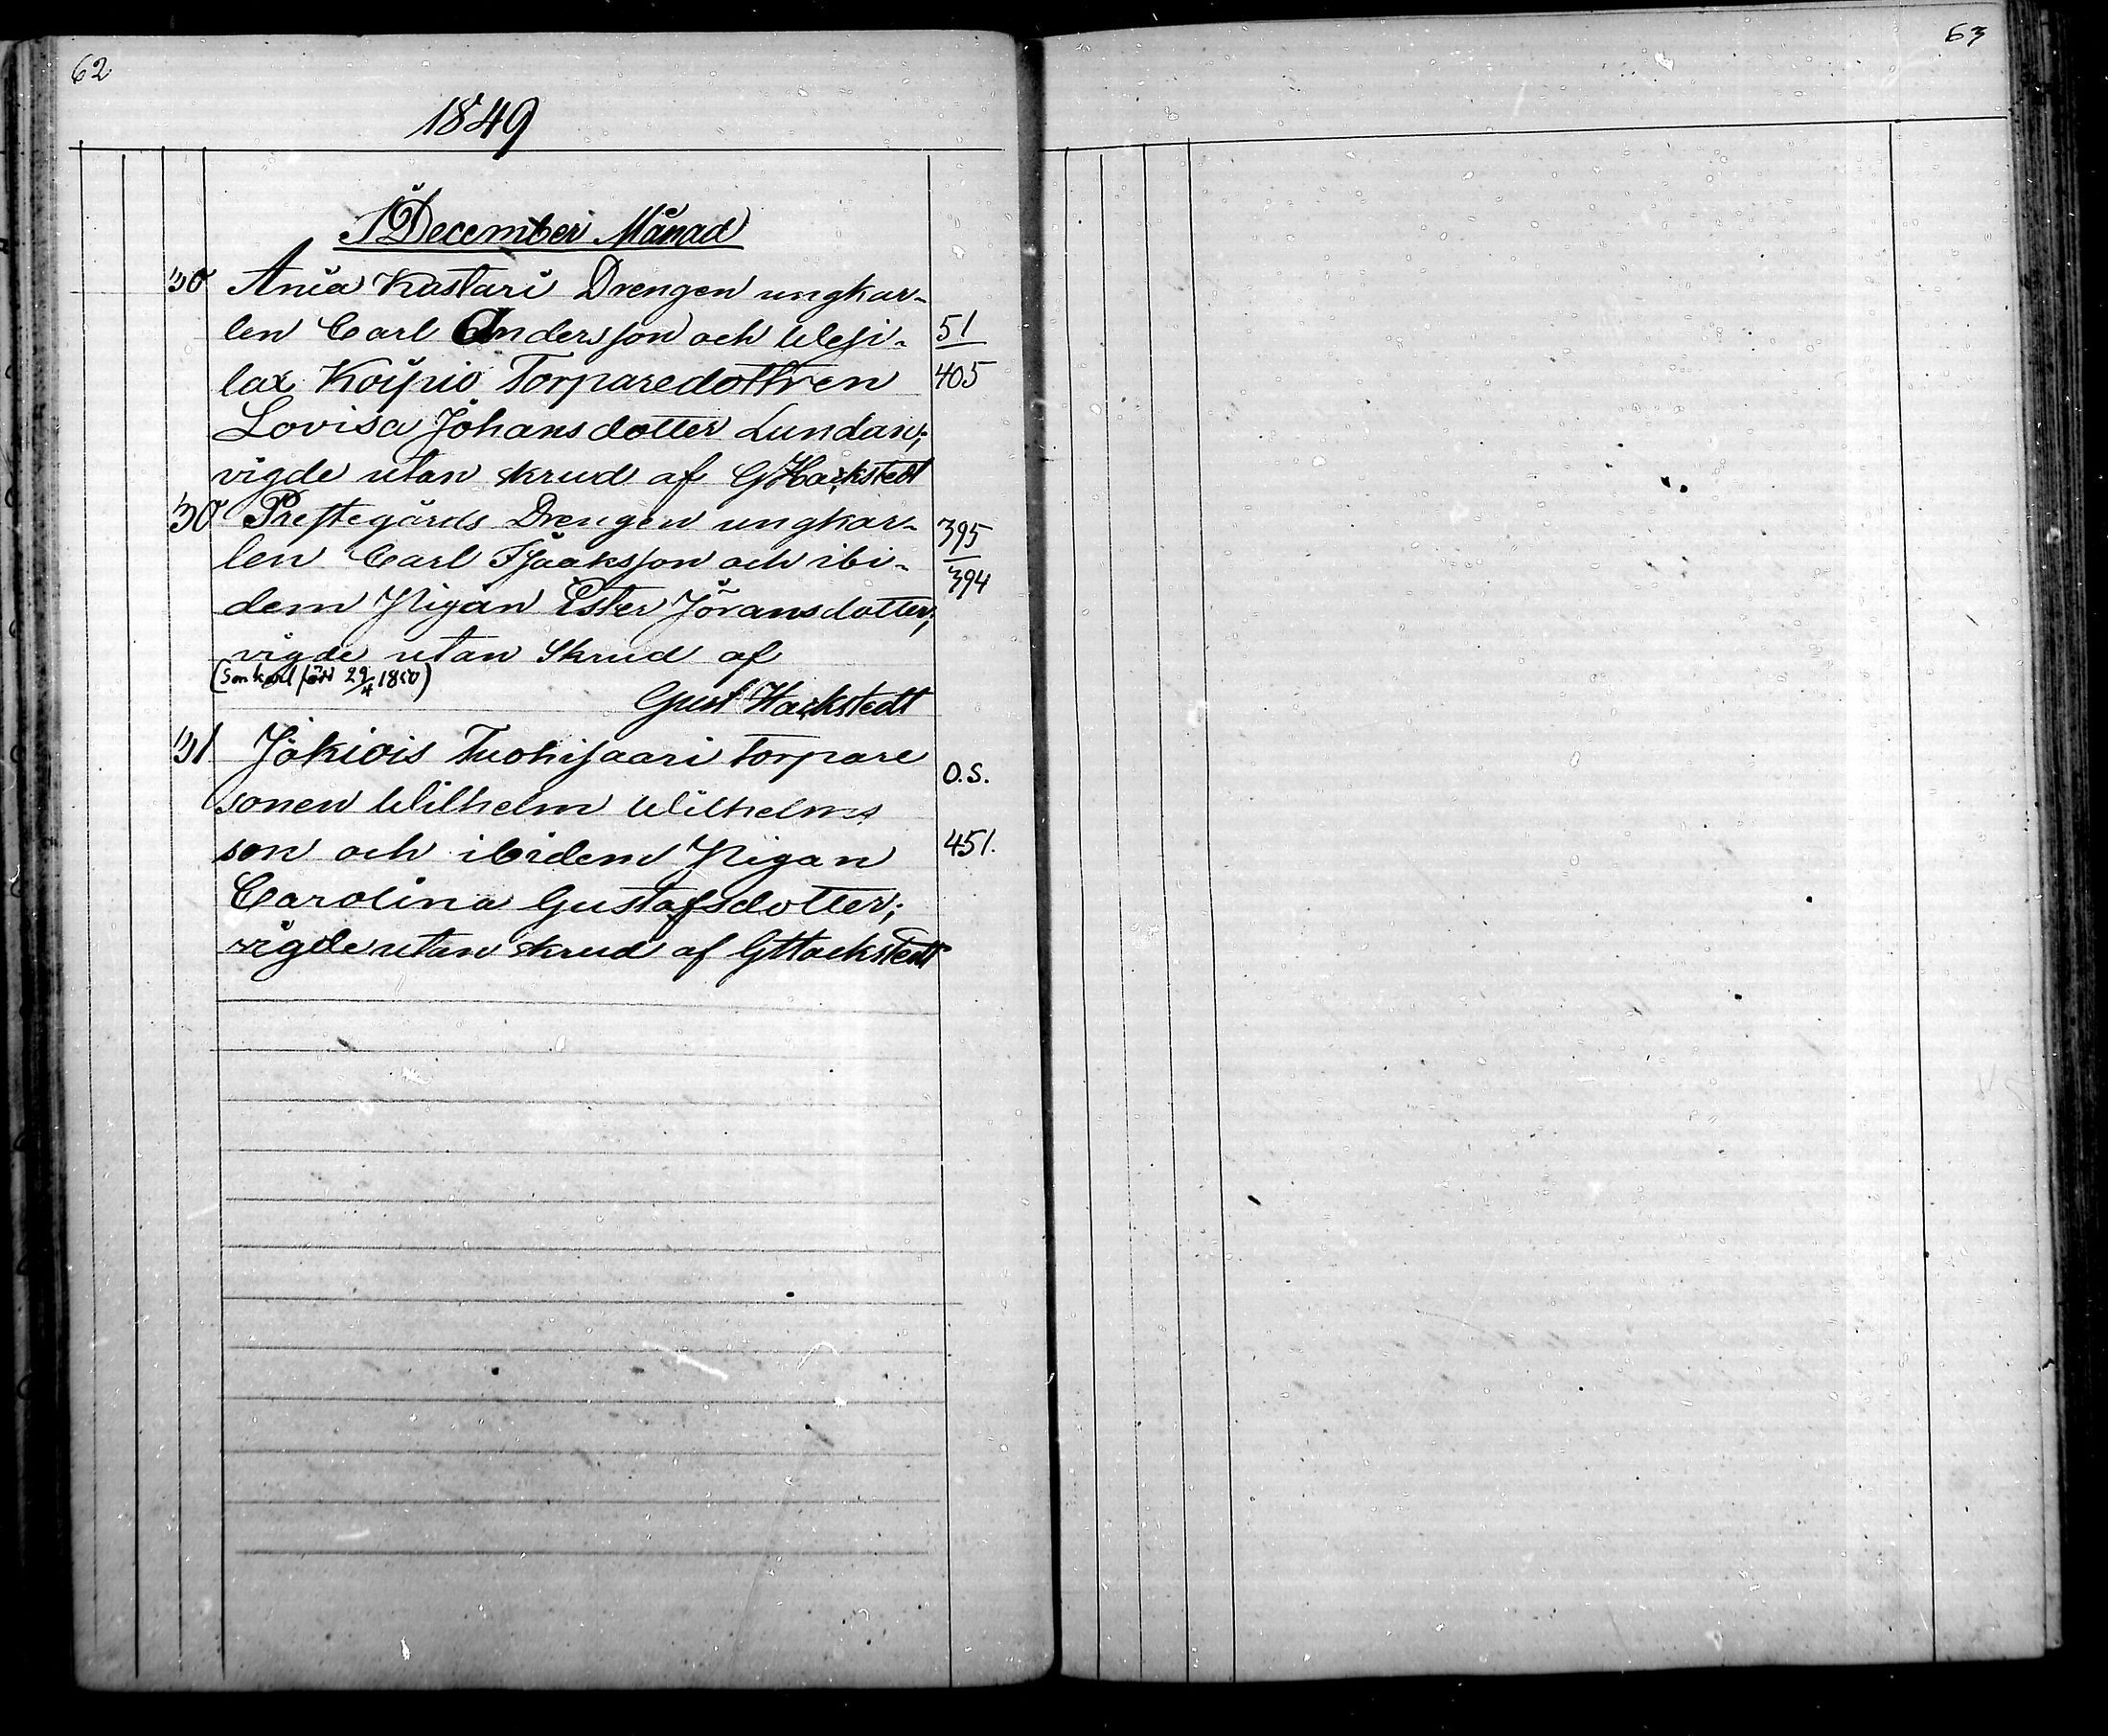 62
63
1849
I December Månad
30 Ania Kastari Drengen ungkar-
len Carl Andersson och Wesi- 51
lax Koipio Torparedottren 405
Lovisa Johansdotter Lundan;
vigde utan skrud af GHackstedt
30 Prestegårds Drengen ungkar- 395
len Carl Isaaksson och ibi- 394
dem Pigan Ester Jöransdotter;
vigde utan Skrud af
(Son karl född 29/4 1850)
Gust Hackstedt
31 Jokiois Tuohisaari torpare O.S.
sonen Wilhelm Wilhelms
son och ibidem Pigan 451.
Carolina Gustafsdotter;
vigde utan skrud af GHackstedt